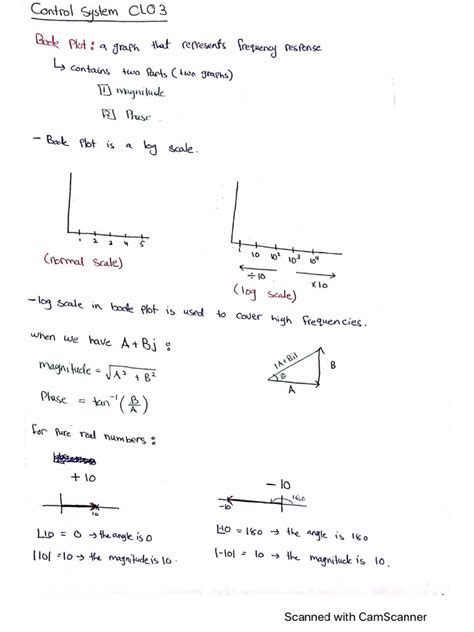 Control System CLO3
Bode Plot : a graph that represents frequency response
↳ contains two Parts (two graphs)
[1] magnitude
[2] Phase
- Bode Plot is a log scale.
1 2 3 4 5
(normal scale)
1 10 10² 10³ 10⁴
÷10 ×10
(log scale)
- log scale in bode plot is used to cover high frequencies.
when we have A+Bj :
magnitude = √A² + B²
Phase = tan⁻¹(B/A)
|A+Bj|
B
θ
A
for Pure real numbers :
+10
10
∠10 = 0 → the angle is 0
|10| = 10 → the magnitude is 10.
-10
-10 180
∠-10 = 180 → the angle is 180
|-10| = 10 → the magnitude is 10.
Scanned with CamScanner